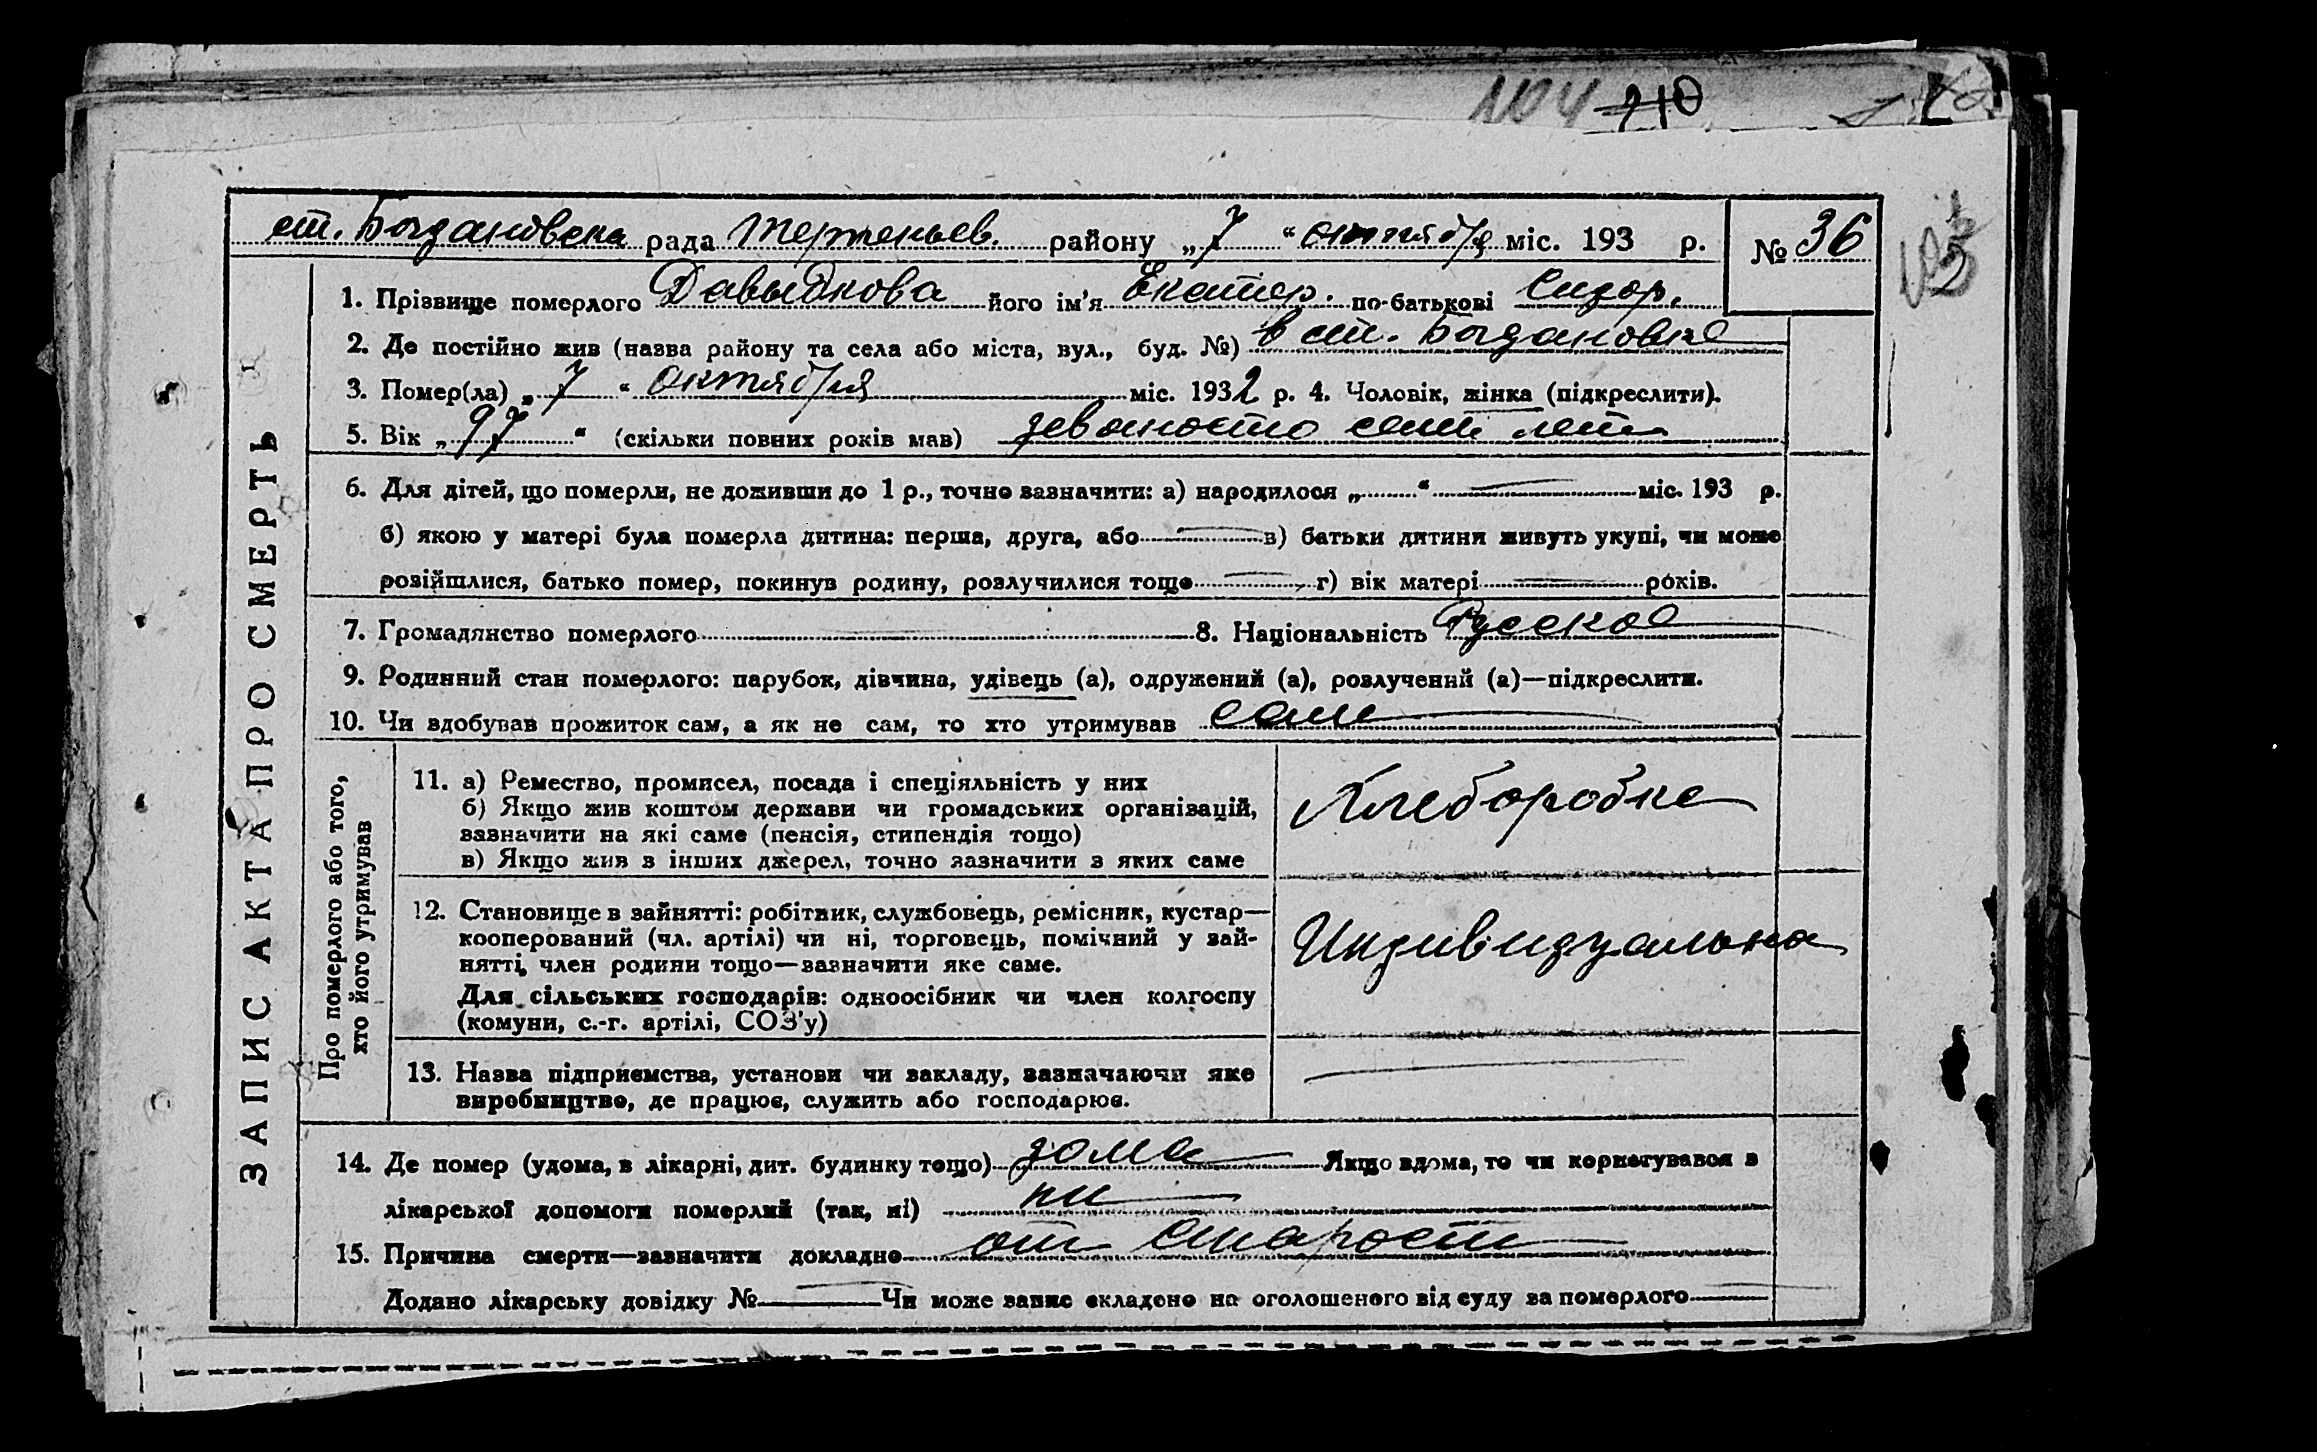 № 4 210
ст. Богдановска рада Терпеньев. району „ 7 “ октября міс. 193 р. № 36
1. Прізвище померлого Давыдкова його ім'я Екатер. по-батькові Сидор.
2. Де постійно жив (назва району та села або міста, вул., буд. №) в ст. Богдановке
3. Помер(ла) „ 7 “ октября міс. 1932 р. 4. Чоловік, жінка (підкреслити).
5. Вік „ 97 “ (скільки повних років мав) девяносто семь лет
6. Для дітей, що померли, не доживши до 1 р., точно зазначити: а) народилося „ “ міс. 193 р.
б) якою у матері була померла дитина: перша, друга, або в) батьки дитини живуть укупі, чи може
розійшлися, батько помер, покинув родину, розлучилися тощо г) вік матері років.
7. Громадянство померлого 8. Національність Русская
9. Родинний стан померлого: парубок, дівчина, удівець (а), одружений (а), розлучений (а)—підкреслити.
10. Чи здобував прожиток сам, а як не сам, то хто утримував сам
ЗАПИС АКТА ПРО СМЕРТЬ
Про померлого або того,
хто його утримував
11. а) Ремество, промисел, посада і спеціяльність у них
б) Якщо жив коштом держави чи громадських організацій,
зазначити на які саме (пенсія, стипендія тощо)
в) Якщо жив з інших джерел, точно зазначити з яких саме
Хлеборобка
12. Становище в зайнятті: робітник, службовець, ремісник, кустар—
кооперований (чл. артілі) чи ні, торговець, помічний у зай-
нятті, член родини тощо—зазначити яке саме.
Для сільських господарів: одноосібник чи член колгоспу
(комуни, с.-г. артілі, СОЗ'у)
Индивидуальна
13. Назва підприємства, установи чи закладу, зазначаючи яке
виробництво, де працює, служить або господарює.
14. Де помер (удома, в лікарні, дит. будинку тощо) дома Якщо вдома, то чи користувався з
лікарської допомоги померлий (так, ні) ни
15. Причина смерти—зазначити докладно от старости
Додано лікарську довідку № Чи може запис складено на оголошеного від суду за померлого